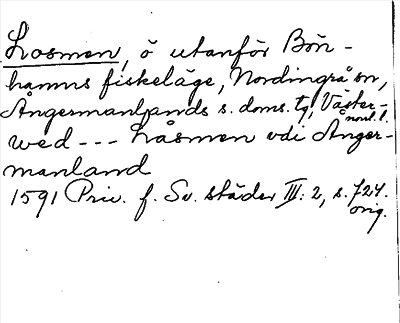 Losmen, ö utanför Bön-
hamns fiskeläge, Nordingrå sn,
Ångermanlands s. doms. tg, Väster-
norrl. l.
wed --- Låsmen vdi Ånger-
manland
1591 Priv. f. Sv. städer III: 2, s. 724.
orig.